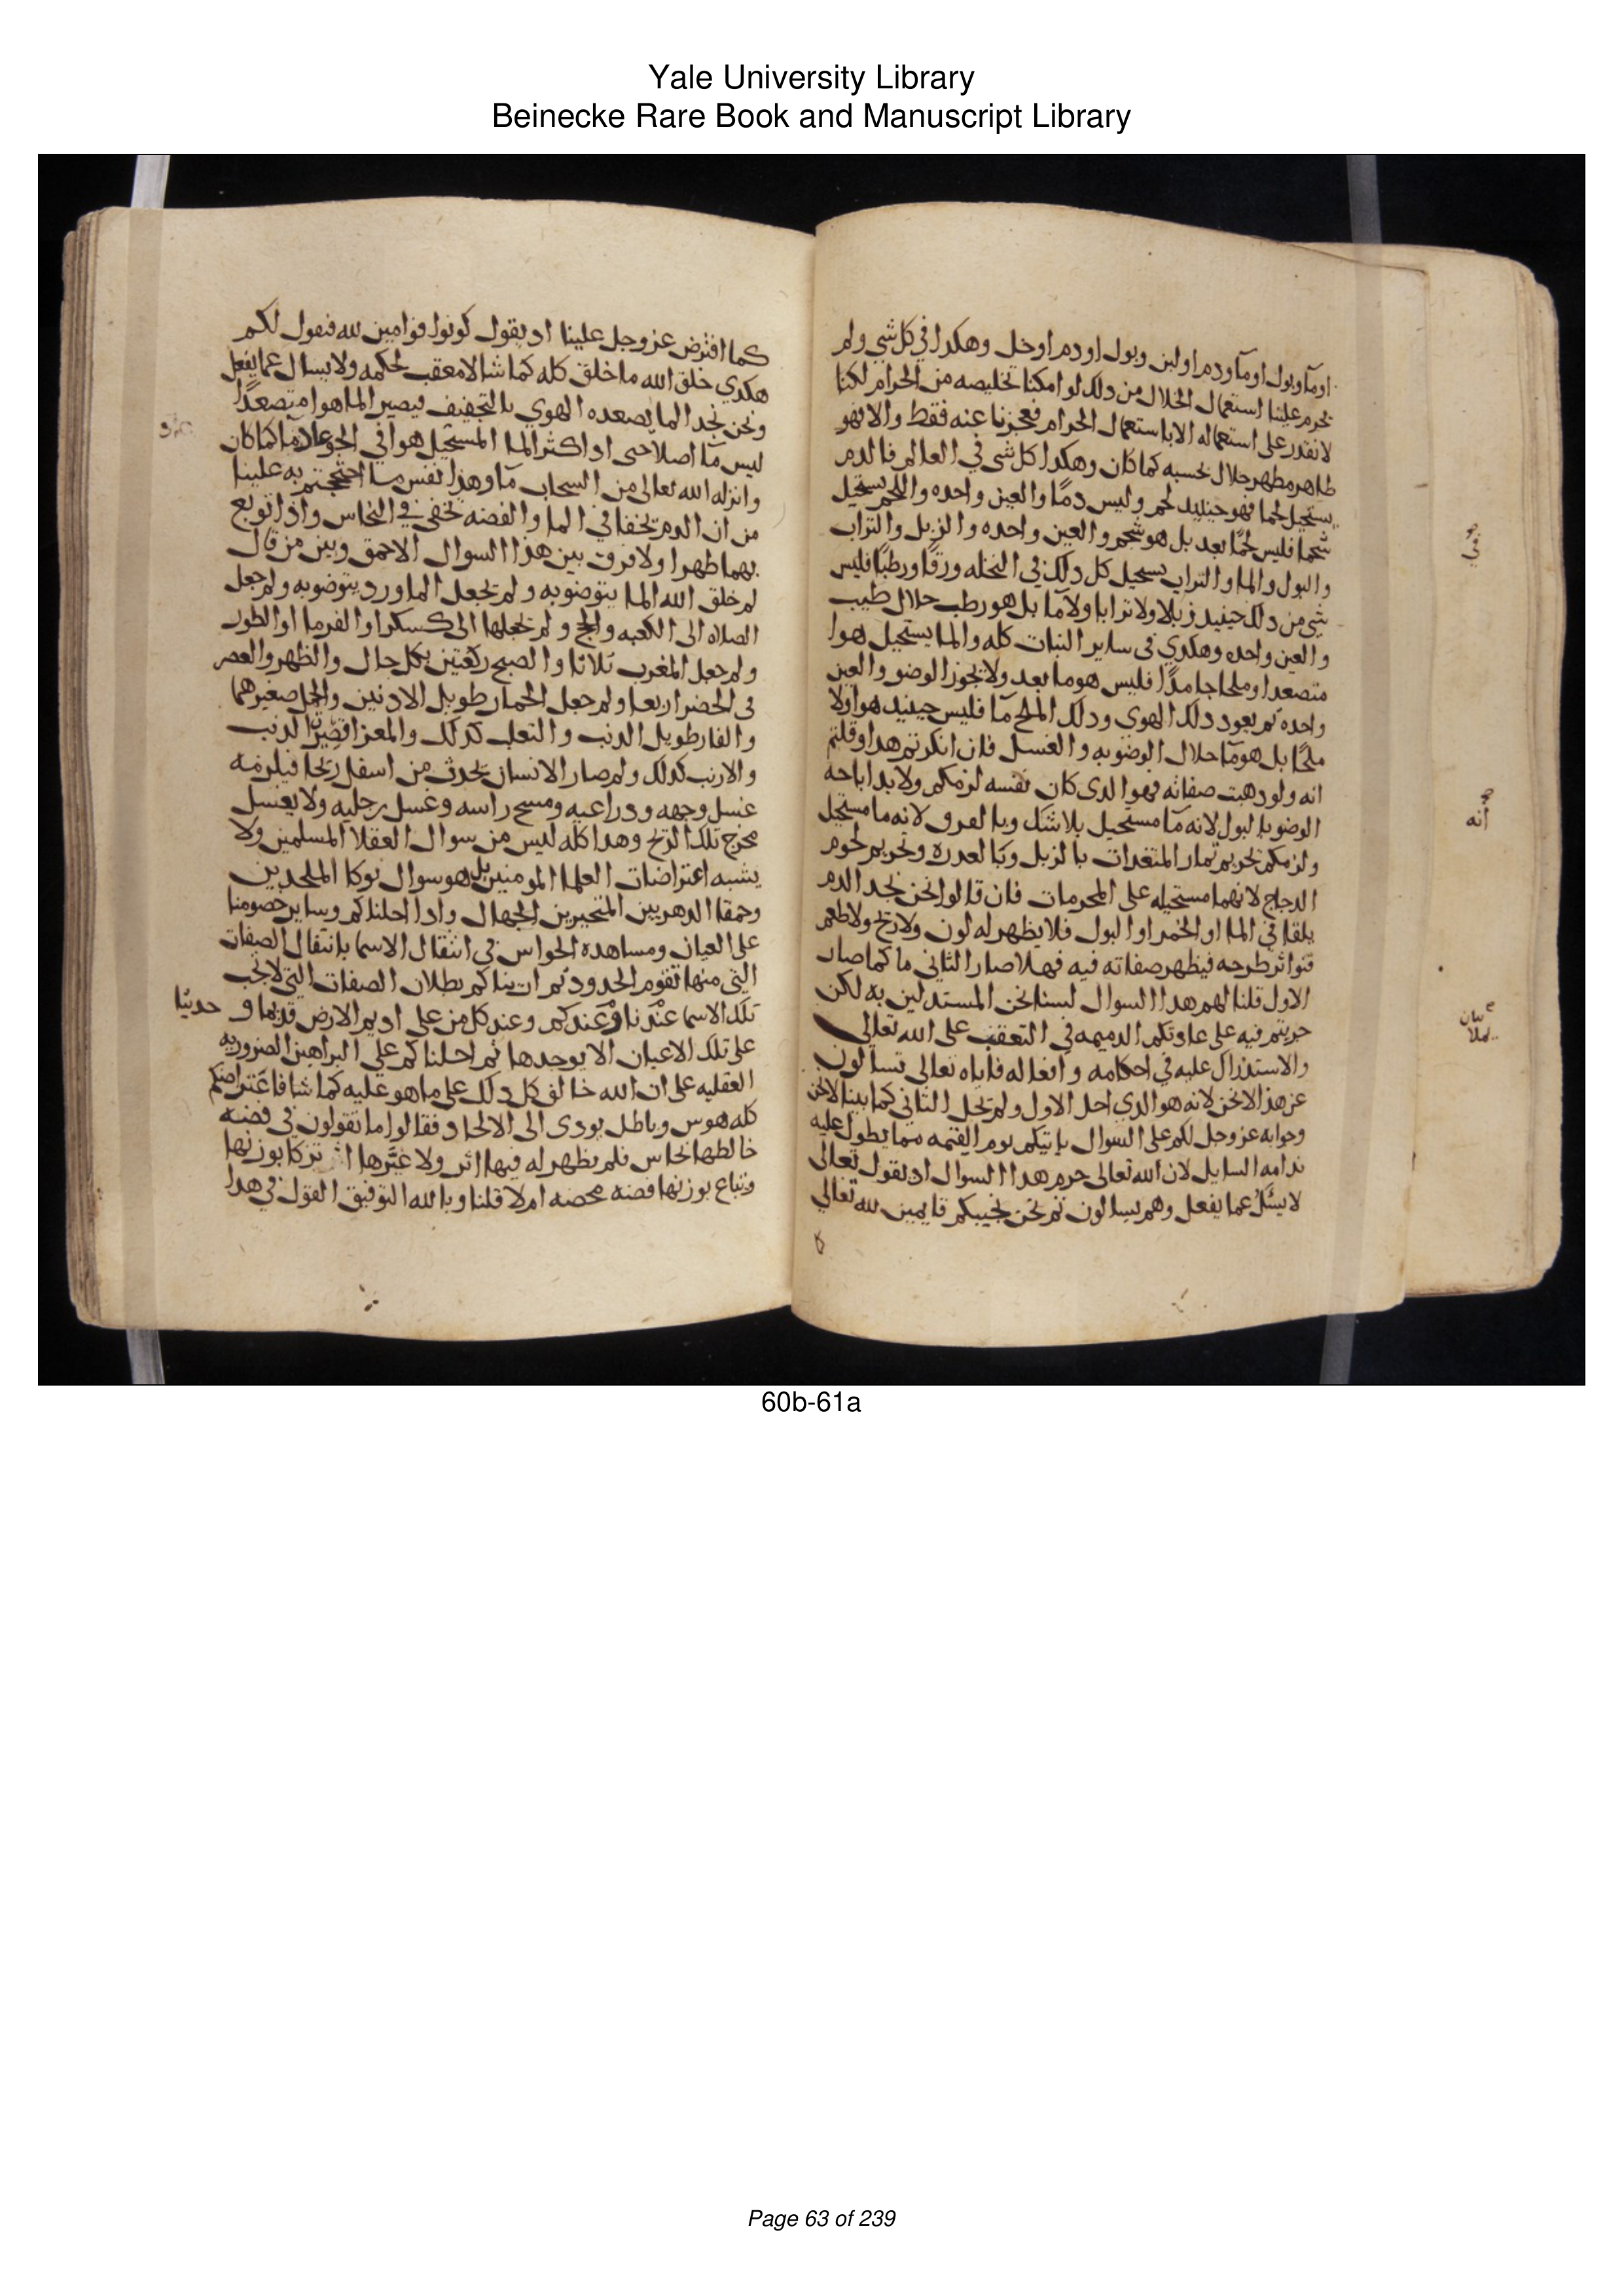 Yale University Library
Beinecke Rare Book and Manuscript Library
اوما وبول اوما ودم اولبن وبول اودم اوخل وهكدا في كل شي ولم
يحرم علينا استعمال الحلال من دلك لو امكنا تخليصه من الحرام لكنا
لا نقدر على استعماله الا باستعمال الحرام فعجزنا عنه فقط والا فهو
طاهر مطهر حلال بحسبه كما كان وهكدا كل شي في العالم فالدم
يستحيل لحما فهو حينيد لحم وليس دمًا والعين واحده واللحم يستحيل
شحما فليس لحمًا بعد بل هو شحم والعين واحده والزبل والتراب
والبول والما والتراب يستحيل كل دلك في النخله ورقًا ورطبًا فليس
شي من دلك حينيد زبلا ولا ترابا ولا مآ بل هو رطب حلال طيب
والعين واحده وهكدي في ساير النبات كله والما يستحيل هوا
متصعدا وملحا جامدًا فليس هو ما بعد ولا يجوز الوضو والعين
واحده ثم يعود دلك الهوى ودلك الملح مآ فليس حينيد هوا ولا
ملحًا بل هو مآ حلال الوضو به والغسل فان انكرتم هدا وقلتم
انه ولو دهبت صفاته فهو الدى كان نفسه لزمكم ولا بد اباحه
الوضو بالبول لانه مآ مستحيل بلا شك وبالعرق لانه ما مستحيل
ولزمكم تحريم ثمار المتغدات بالزبل وبالعدره وتحريم لحوم
الدجاج لانهما مستحيله على المحرمات فان قالوا نحن نجد الدم
يلقا في الما او الخمر او البول فلا يظهر له لون ولا ريح ولا طعم
فتواثر طرحه فيظهر صفاته فيه فهلا صار الثاني ما كما صار
الاول قلنا لهم هدا السوال لسنا نحن المستدلين به لكن
جريتم فيه على عادتكم الدميمه في التعقب على الله تعالى
والاستدراك عليه في احكامه وافعاله فاياه تعالى تسالون
عن هذا لا نحن لانه هو الدي احل الاول ولم يحل الثاني كما بينا لا نحن
وجوابه عز وجل لكم على السوال ياتيكم يوم القيمه مما يطول عليه
ندامه السايل لان الله تعالى حرم هدا السوال اد يقول تعالى
لا يسئل عما يفعل وهم يسالون ثم نحن نجيبكم قايمين لله تعالى
انه
كما افترض عز وجل علينا اد يقول كونوا قوامين لله فنقول لكم
هكدي خلق الله ما خلق كله كما شا لا معقب لحكمه ولا يسال عما يفعل
ونحن نجد الما يصعده الهوي بالتجفيف فيصير الما هوا متصعدًا
ليس مآ اصلا حتى ادا كثر الما المستحيل هوا في الجو عاد ما كما كان
وانزله الله تعالى من السحاب مآ وهذا نفس ما احتججتم به علينا
من ان الدم يخفا في الما والفضه تخفى في النحاس وادا توبع
بهما ظهرا ولا فرق بين هذا السوال الاحمق وبين من قال
لم خلق الله الما يتوضو به ولم يجعل الماورد يتوضو به ولم جعل
الصلاه الى الكعبه والحج ولم يجعلها الى كسكر او الفرما او الطور
ولم جعل المغرب ثلاثا والصبح ركعتين بكل حال والظهر والعصر
في الحضر اربعا ولم جعل الحمار طويل الادنين والجمل صغيرهما
والفار طويل الدنب والثعلب كدلك والمعزا قصير الدنب
والارنب كدلك ولم صار الانسان يحدث من اسفل ريحا فيلزمه
غسل وجهه ودراعيه ومسح راسه وغسل رجليه ولا يغسل
مخرج تلك الريح وهدا كله ليس من سوال العقلا المسلمين ولا
يشبه اعتراضات العلما المومنين بل هو سوال نوكا الملحدين
وحمقا الدهريين المتحيرين الجهال وادا احلناكم وساير خصومنا
على العيان ومساهده الحواس في انتقال الاسما بانتقال الصفات
التي منها تقوم الحدود ثم ارينا كم بطلان الصفات التي لا تجب
تلك الاسما عندنا وعندكم وعند كل من على اديم الارض قديما و حديثا
على تلك الاعيان الا بوجودها ثم احلناكم علي البراهين الضروريه
العقليه على ان الله خالق كل دلك على ما هو عليه كما شا فاعتراضكم
كله هوس وباطل يودى الى الالحاد فقالوا ما تقولون في فضه
خالطها نحاس فلم يظهر له فيها اثر ولا غيرها تزكا بوزنها
وتباع بوزنها فضه محضه ام لا قلنا وبالله التوفيق القول في هدا
60b-61a
Page 63 of 239